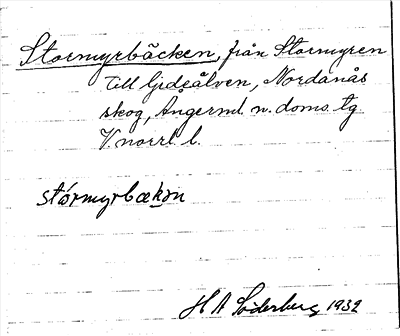 Stormyrbäcken, från Stormyren
till Gideälven, Nordanås
skog, Ångerml. n. doms. tg.
V. norrl. l.
stórmyrbækən
H A Söderberg 1932